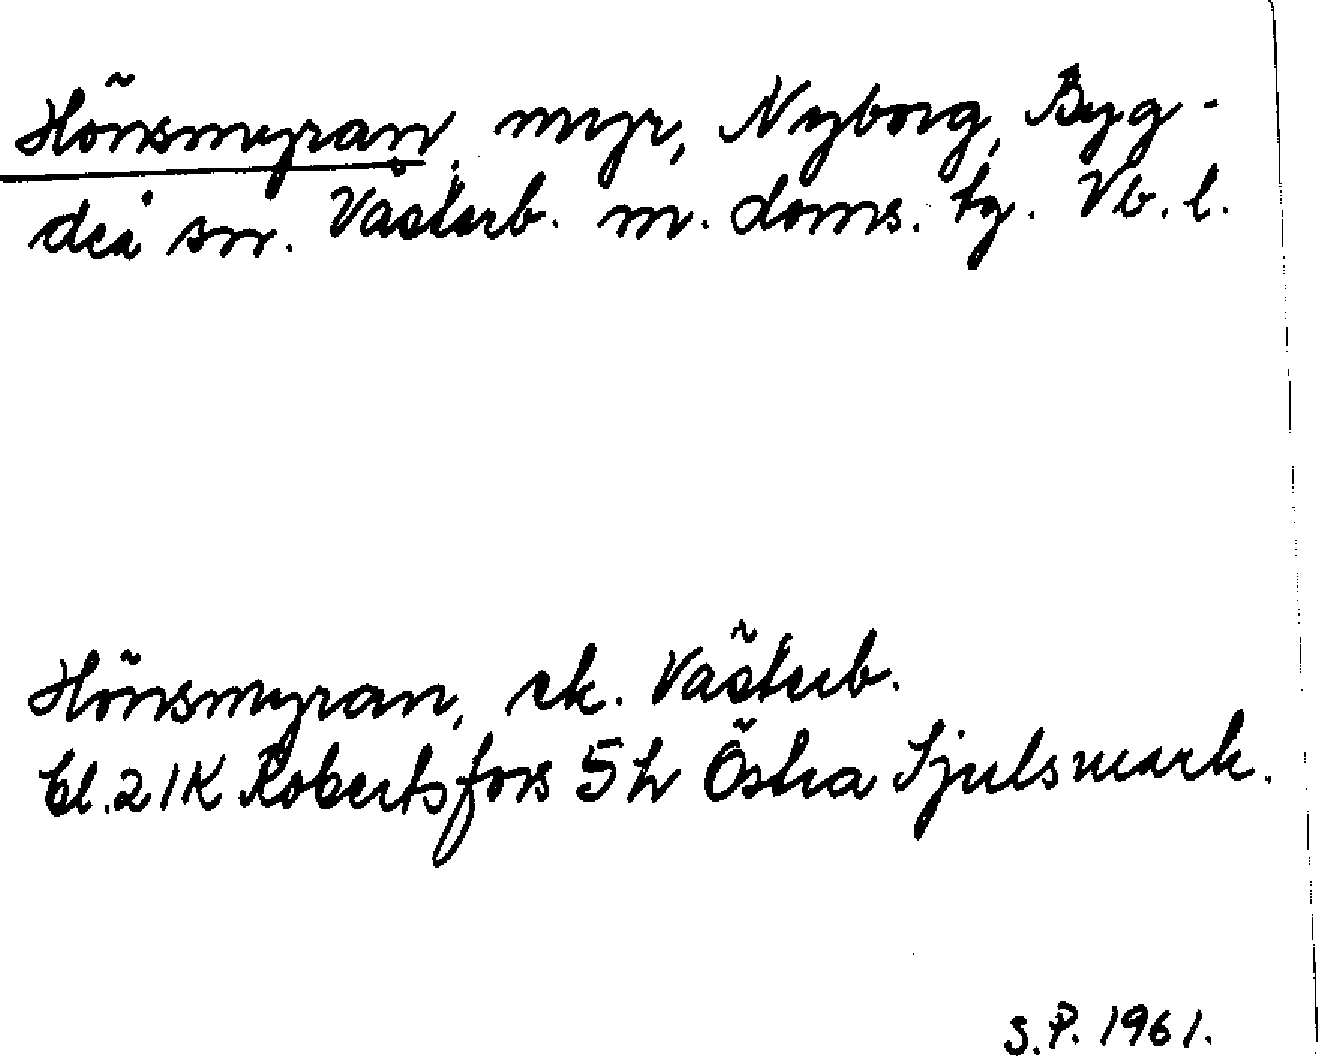 Hönsmyran, myr, Nyborg, Byg-
deå sn. Västerb. m. doms. tg. Vb. l.
Hönsmyran, ek. Västerb.
bl. 21K Robertsfors 5h Östra Sjulsmark.
S.P. 1961.